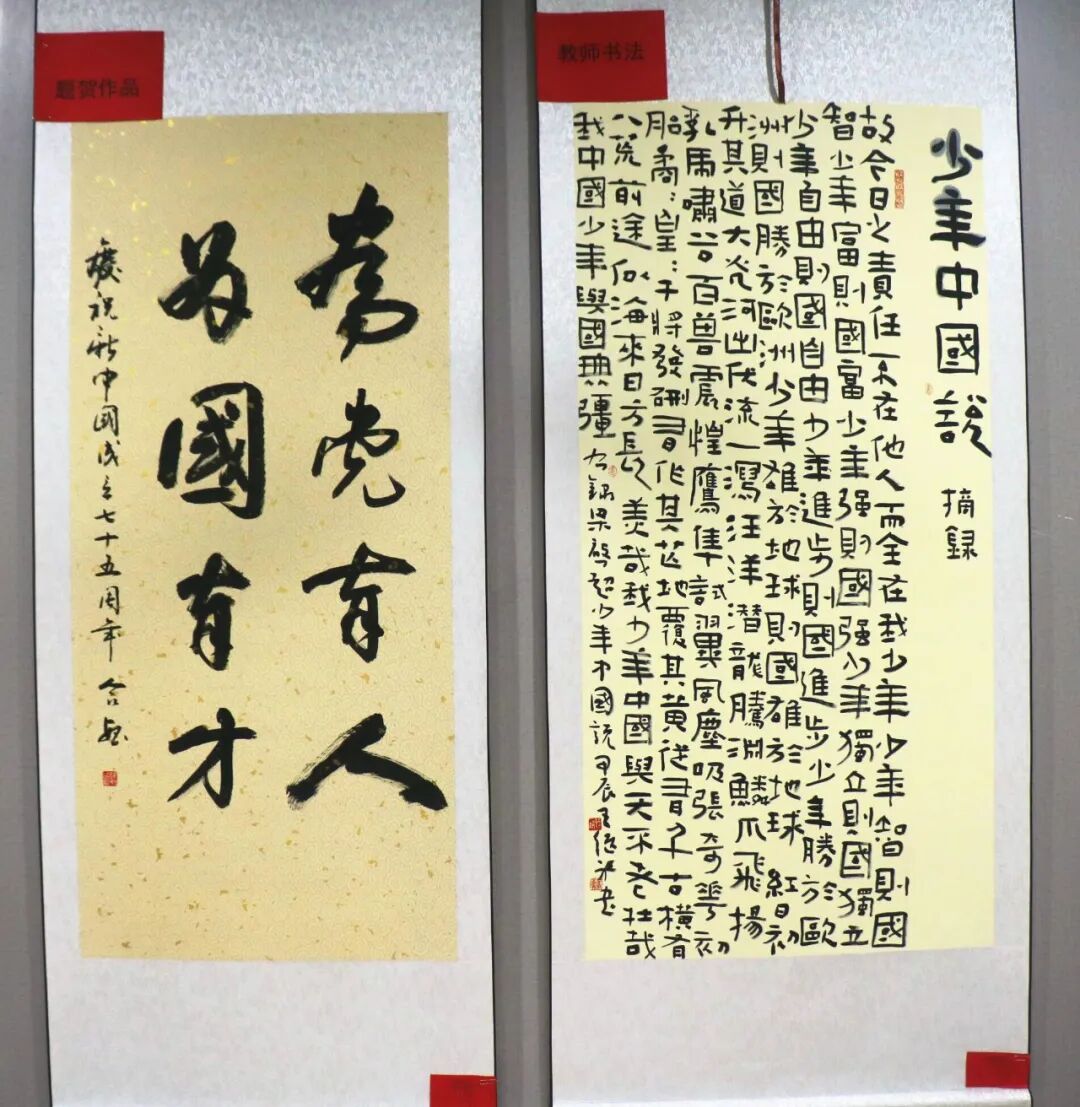 题贺作品
為党育人
为國育才
慶祝新中國成立七十五周年
教师书法
少年中國說 摘録
故今日之責任不在他人而全在我少年少年智則國
智少年富則國富少年强則國强少年獨立則國獨立
少年自由則國自由少年進步則國進步少年勝於歐
洲則國勝於歐洲少年雄於地球則國雄於地球紅日初
升其道大光河出伏流一瀉汪洋潛龍騰淵鱗爪飛揚
乳虎嘯谷百獸震惶鷹隼試翼風塵吸張奇花初
胎矞:皇:干將發硎有作其芒地履其黄從有千古橫有
八荒前途似海來日方長美哉我少年中國與天不老壯哉
我中國少年與國無疆 右録梁啓超少年中國説甲辰王書